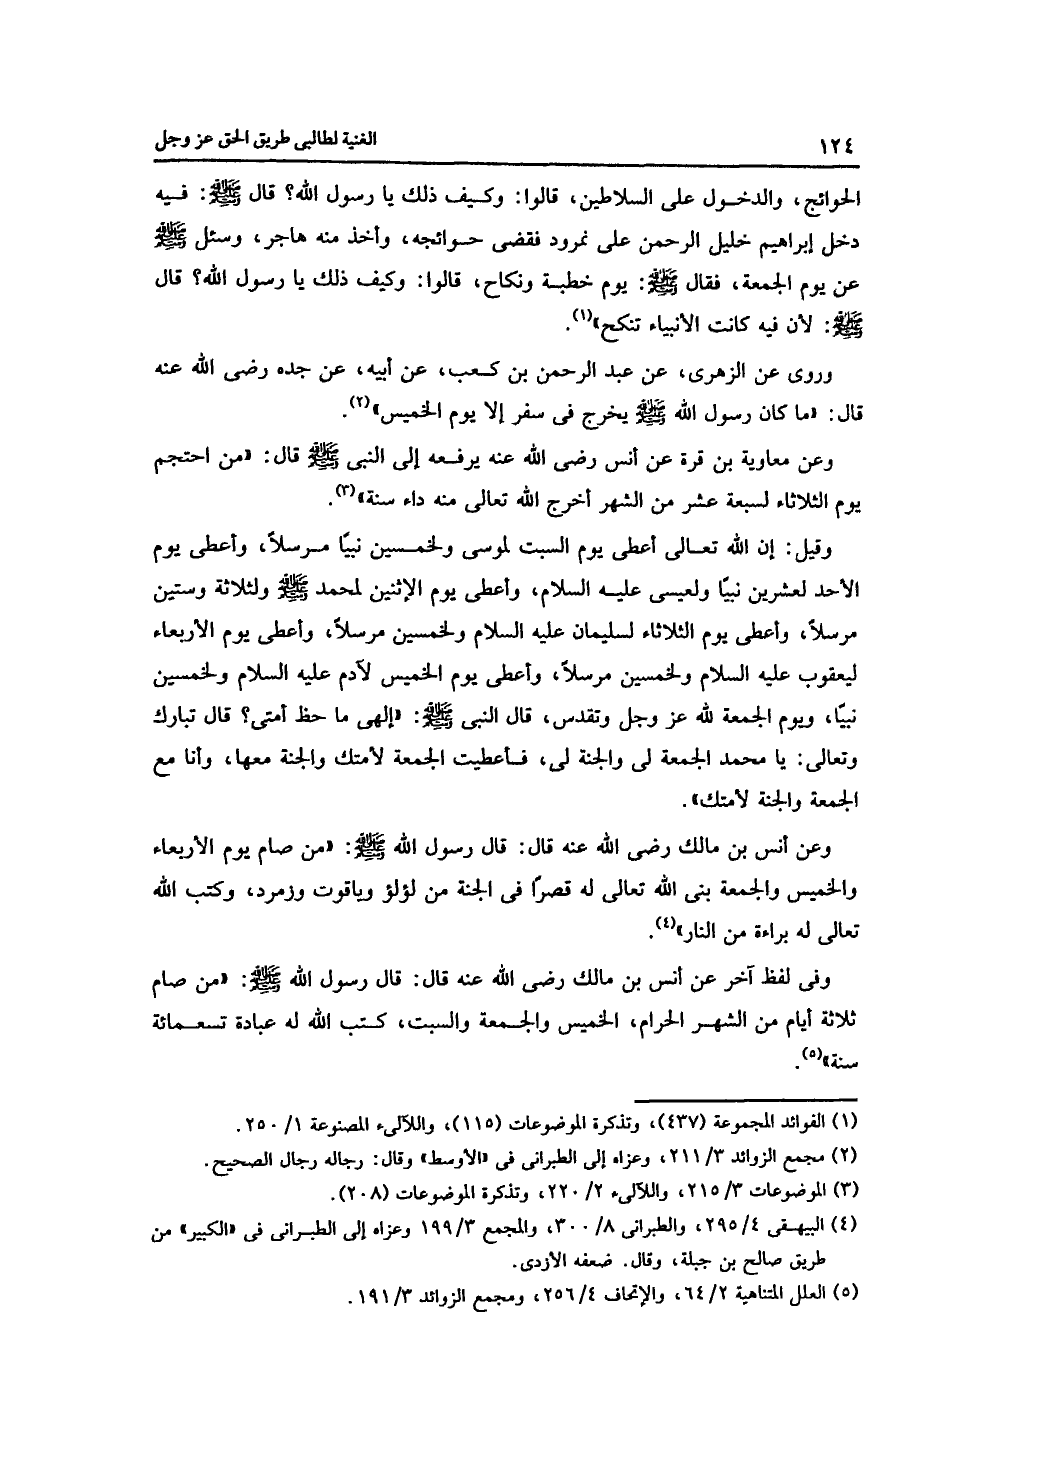 ١٢٤ الغنية لطالبى طريق الحق عز وجل
الحوائج، والدخول على السلاطين، قالوا: وكيف ذلك يا رسول الله؟ قال ﷺ: فيه
دخل إبراهيم خليل الرحمن على نمرود فقضى حوائجه، وأخذ منه هاجر، وسئل ﷺ
عن يوم الجمعة، فقال ﷺ: يوم خطبة ونكاح، قالوا: وكيف ذلك يا رسول الله؟ قال
ﷺ: لأن فيه كانت الأنبياء تنكح»(١).
وروى عن الزهرى، عن عبد الرحمن بن كعب، عن أبيه، عن جده رضى الله عنه
قال: «ما كان رسول الله ﷺ يخرج فى سفر إلا يوم الخميس»(٢).
وعن معاوية بن قرة عن أنس رضى الله عنه يرفعه إلى النبى ﷺ قال: «من احتجم
يوم الثلاثاء لسبعة عشر من الشهر أخرج الله تعالى منه داء سنة»(٣).
وقيل: إن الله تعالى أعطى يوم السبت لموسى ولخمسين نبيًا مرسلاً، وأعطى يوم
الأحد لعشرين نبيًا ولعيسى عليه السلام، وأعطى يوم الإثنين لمحمد ﷺ ولثلاثة وستين
مرسلاً، وأعطى يوم الثلاثاء لسليمان عليه السلام ولخمسين مرسلاً، وأعطى يوم الأربعاء
ليعقوب عليه السلام ولخمسين مرسلاً، وأعطى يوم الخميس لآدم عليه السلام ولخمسين
نبيًا، ويوم الجمعة لله عز وجل وتقدس، قال النبى ﷺ: «إلهى ما حظ أمتى؟ قال تبارك
وتعالى: يا محمد الجمعة لى والجنة لى، فأعطيت الجمعة لأمتك والجنة معها، وأنا مع
الجمعة والجنة لأمتك».
وعن أنس بن مالك رضى الله عنه قال: قال رسول الله ﷺ: «من صام يوم الأربعاء
والخميس والجمعة بنى الله تعالى له قصرًا فى الجنة من لؤلؤ وياقوت وزمرد، وكتب الله
تعالى له براءة من النار»(٤).
وفى لفظ آخر عن أنس بن مالك رضى الله عنه قال: قال رسول الله ﷺ: «من صام
ثلاثة أيام من الشهر الحرام، الخميس والجمعة والسبت، كتب الله له عبادة تسعمائة
سنة»(٥).
(١) الفوائد المجموعة (٤٣٧)، وتذكرة الموضوعات (١١٥)، واللآلىء المصنوعة ١/ ٢٥٠.
(٢) مجمع الزوائد ٣/ ٢١١، وعزاه إلى الطبرانى فى «الأوسط» وقال: رجاله رجال الصحيح.
(٣) الموضوعات ٣/ ٢١٥، واللآلىء ٢/ ٢٢٠، وتذكرة الموضوعات (٢٠٨).
(٤) البيهقى ٤/ ٢٩٥، والطبرانى ٨/ ٣٠٠، والمجمع ٣/ ١٩٩ وعزاه إلى الطبرانى فى «الكبير» من
طريق صالح بن جبلة، وقال. ضعفه الأزدى.
(٥) العلل المتناهية ٢/ ٦٤، والإتحاف ٤/ ٢٥٦، ومجمع الزوائد ٣/ ١٩١.